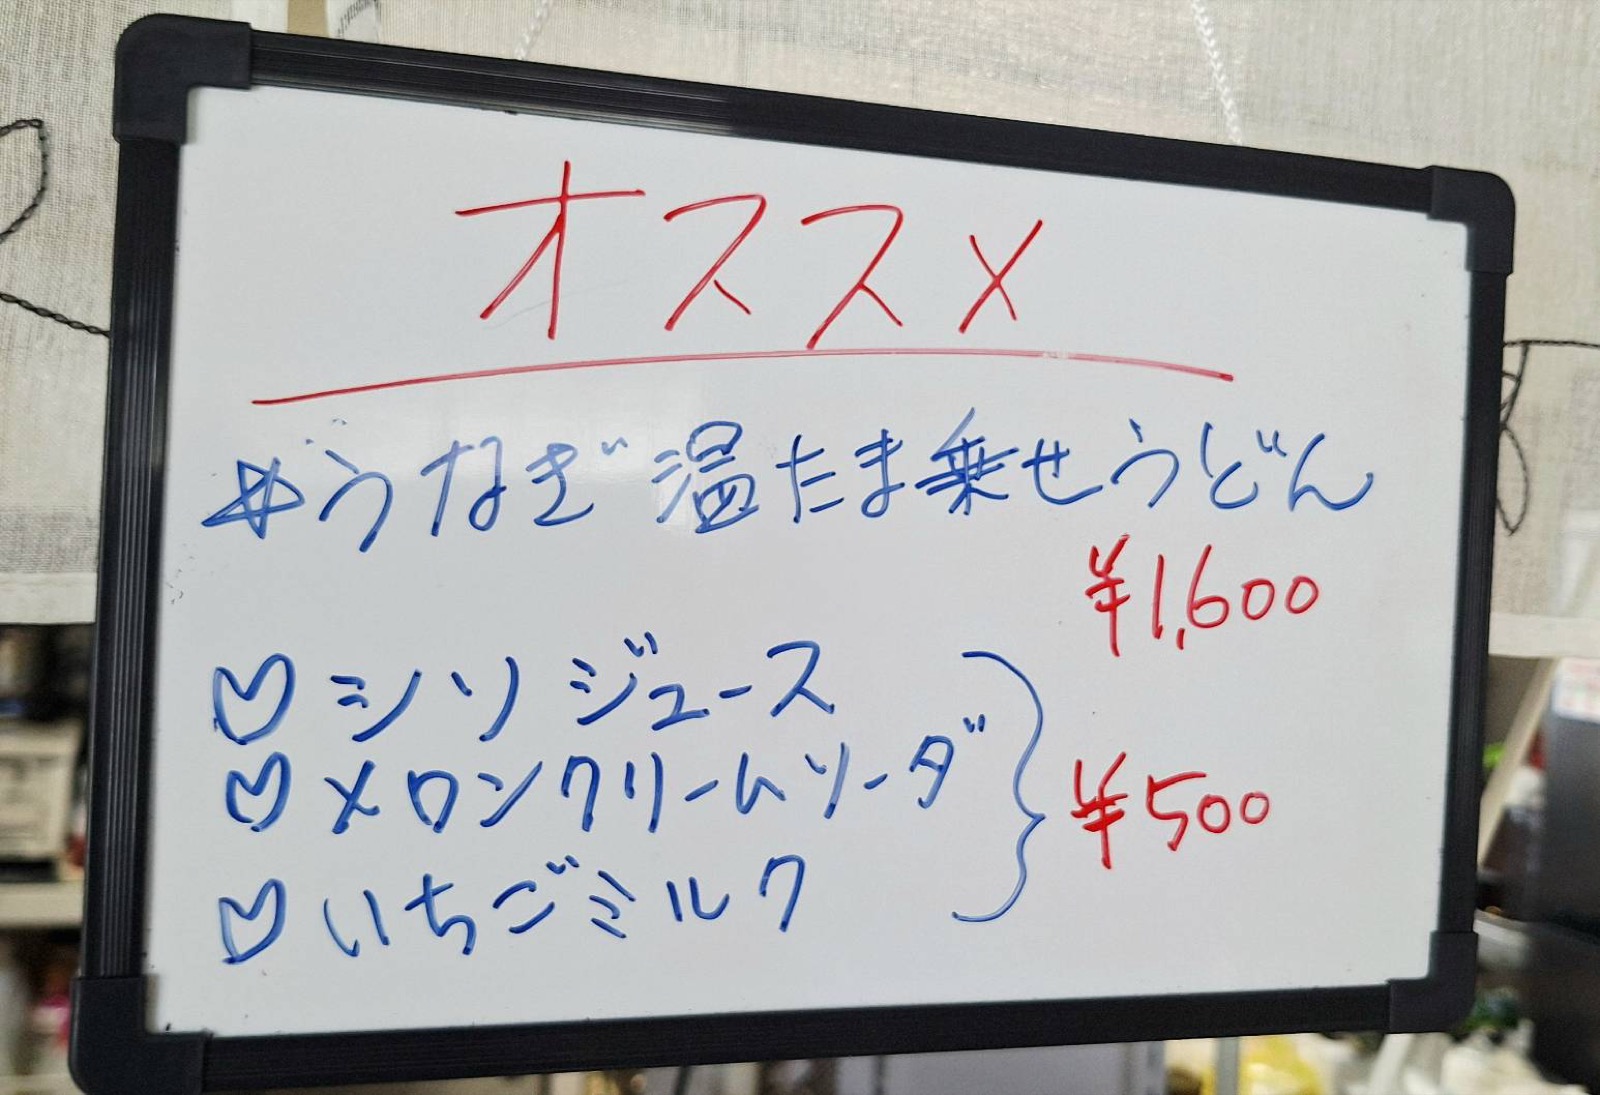 オススメ
☆うなぎ温たま乗せうどん
¥1,600
♡シソジュース
♡メロンクリームソーダ
¥500
♡いちごミルク